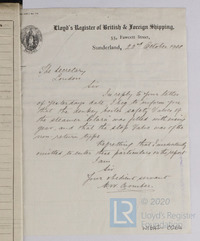 Lloyd's Register of British & Foreign Shipping,
Fawcett Street,
Sunderland, 22nd October
The Secretary
London
Sir
In reply to your letter
of yesterday's date I beg to inform you
that the donkey boiler safety valve of
the steamer was fitted with easing
gear, and that the stop valve was of the
non return type.
Regretting that I accidentally
omitted to enter this particulars in the report
I am
Sir
Your obedient servant
© 2020
Lloyd's Register